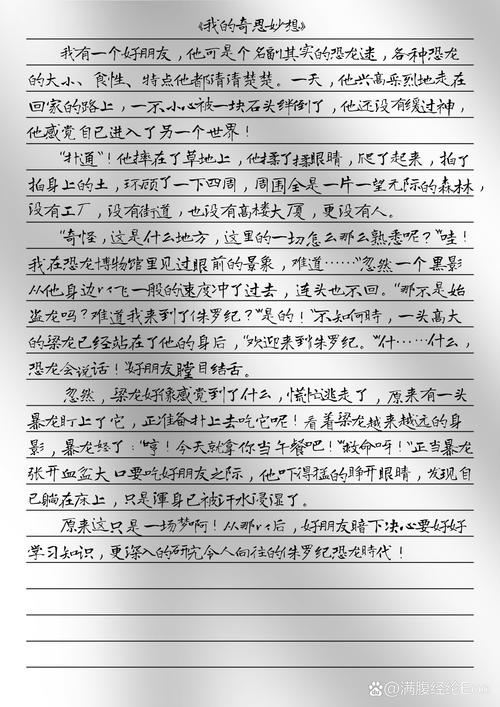 《我的奇思妙想》
我有一个好朋友，他可是个名副其实的恐龙迷，各种恐龙
的大小、食性、特点他都清清楚楚。一天，他兴高采烈地走在
回家的路上，一不小心被一块石头绊倒了，他还没有缓过神，
他感觉自己进入了另一个世界！
“扑通”！他摔在了草地上，他揉了揉眼睛，爬了起来，拍了
拍身上的土，环顾了一下四周，周围全是一片一望无际的森林，
没有工厂，没有街道，也没有高楼大厦，更没有人。
“奇怪，这是什么地方，这里的一切怎么那么熟悉呢？”哇！
我在恐龙博物馆里见过眼前的景象，难道……“忽然一个黑影
从他身边以飞一般的速度冲了过去，连头也不回。“那不是始
盗龙吗？难道我来到了侏罗纪？”是的！”不知何時，一头高大
的梁龙已经站在了他的身后，“欢迎来到侏罗纪。”什……什么，
恐龙会说话！”好朋友瞠目结舌。
忽然，梁龙好像感觉到了什么，慌忙逃走了，原来有一头
暴龙盯上了它，正准备扑上去吃它呢！看着梁龙越来越远的身
影，暴龙怒了：“哼！今天就拿你当午餐吧！”“救命呀！”正当暴龙
张开血盆大口要吃好朋友之际，他吓得猛的睁开眼睛，发现自
己躺在床上，只是浑身已被汗水浸湿了。
原来这只是一场梦啊！从那以后，好朋友暗下决心要好好
学习知识，更深入的研究令人向往的侏罗纪恐龙時代！
@满腹经纶E